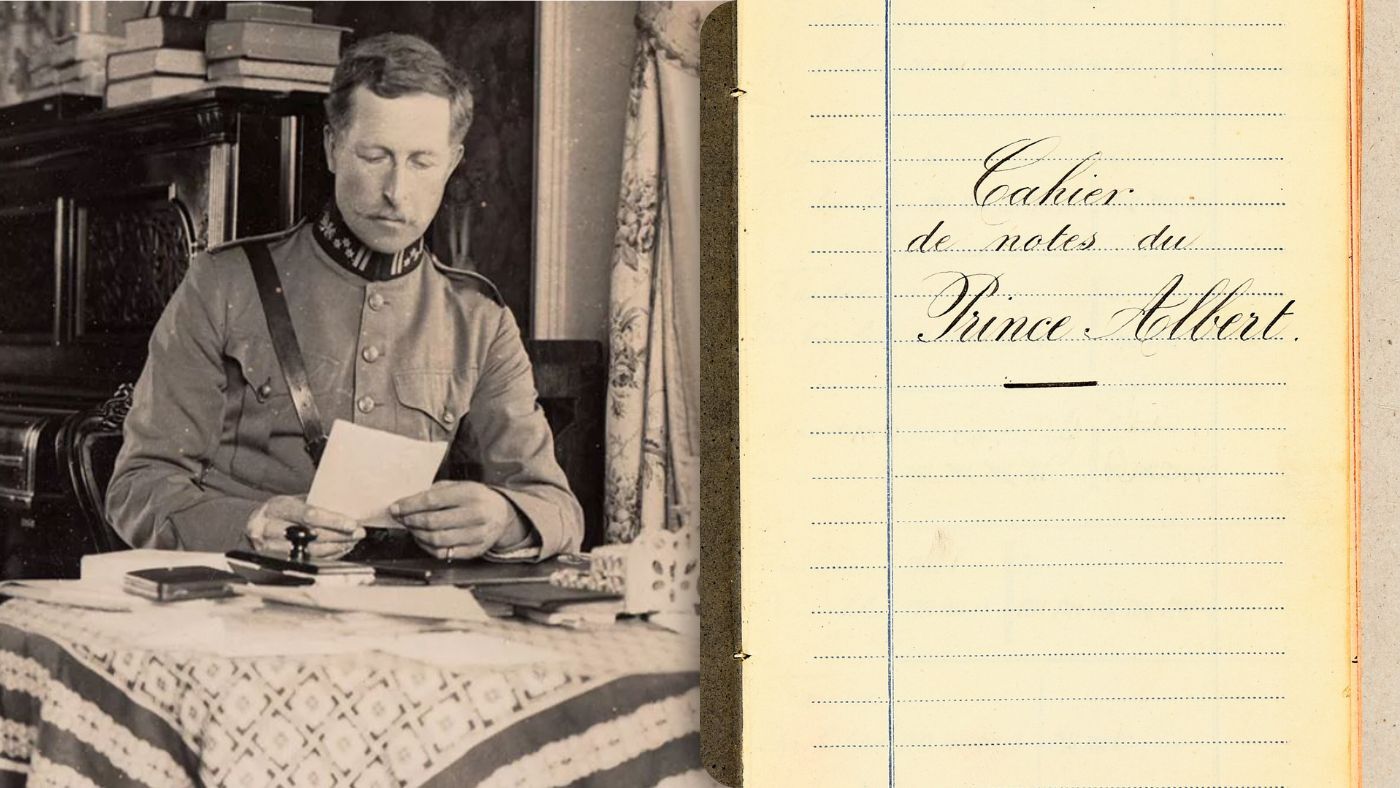 Cahier
de notes du
Prince Albert.